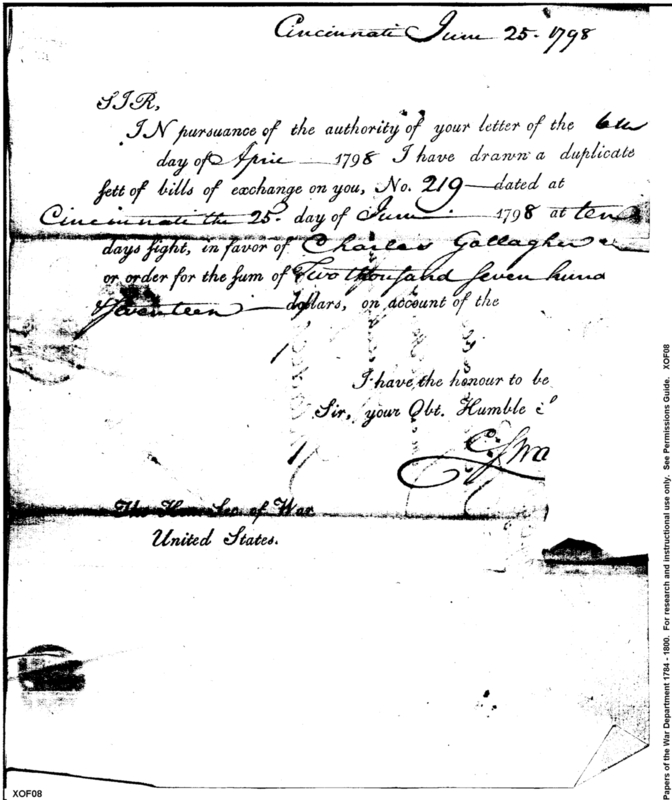 Cincinnati June 25. 1798
SIR,
IN pursuance of the authority of your letter of the 6th
day of April 1798 I have drawn a duplicate
sett of bills of exchange on you, No. 219 dated at
Cincinnati the 25. day of June 1798 at ten
days sight, in favor of Charles Gallagher
or order for the sum of Two thousand seven hund
& Seventeen dollars, on account of the
I have the honour to be
Sir, your Obt. Humble
C. Swa
The Hon. Sec. of War
United States.
Papers of the War Department 1784 - 1800. For research and instructional use only. See Permissions Guide. XOF08
XOF08